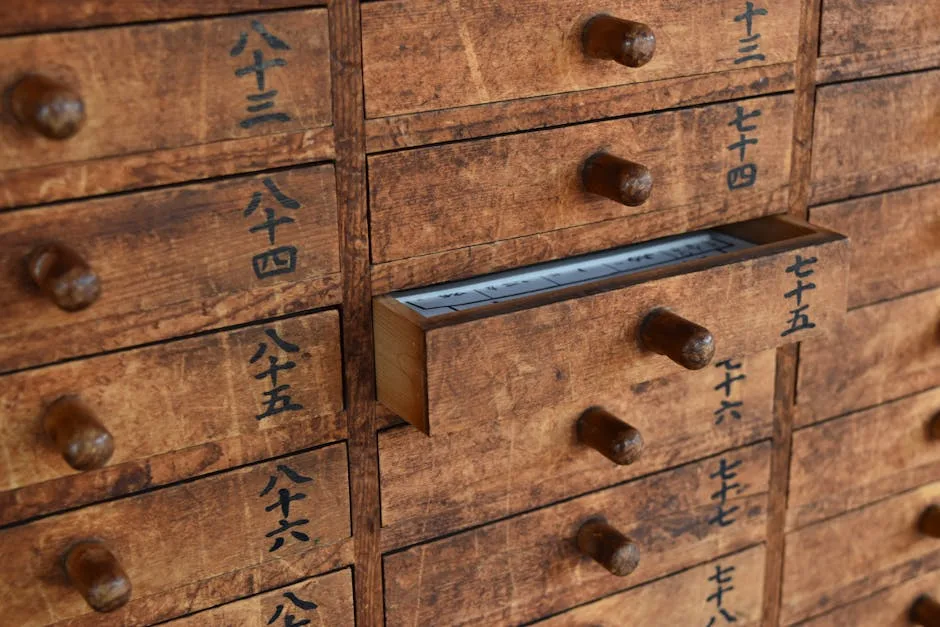 十三
七十四
七十五
七十六
七十七
七十八
八十三
八十四
八十五
八十六
八